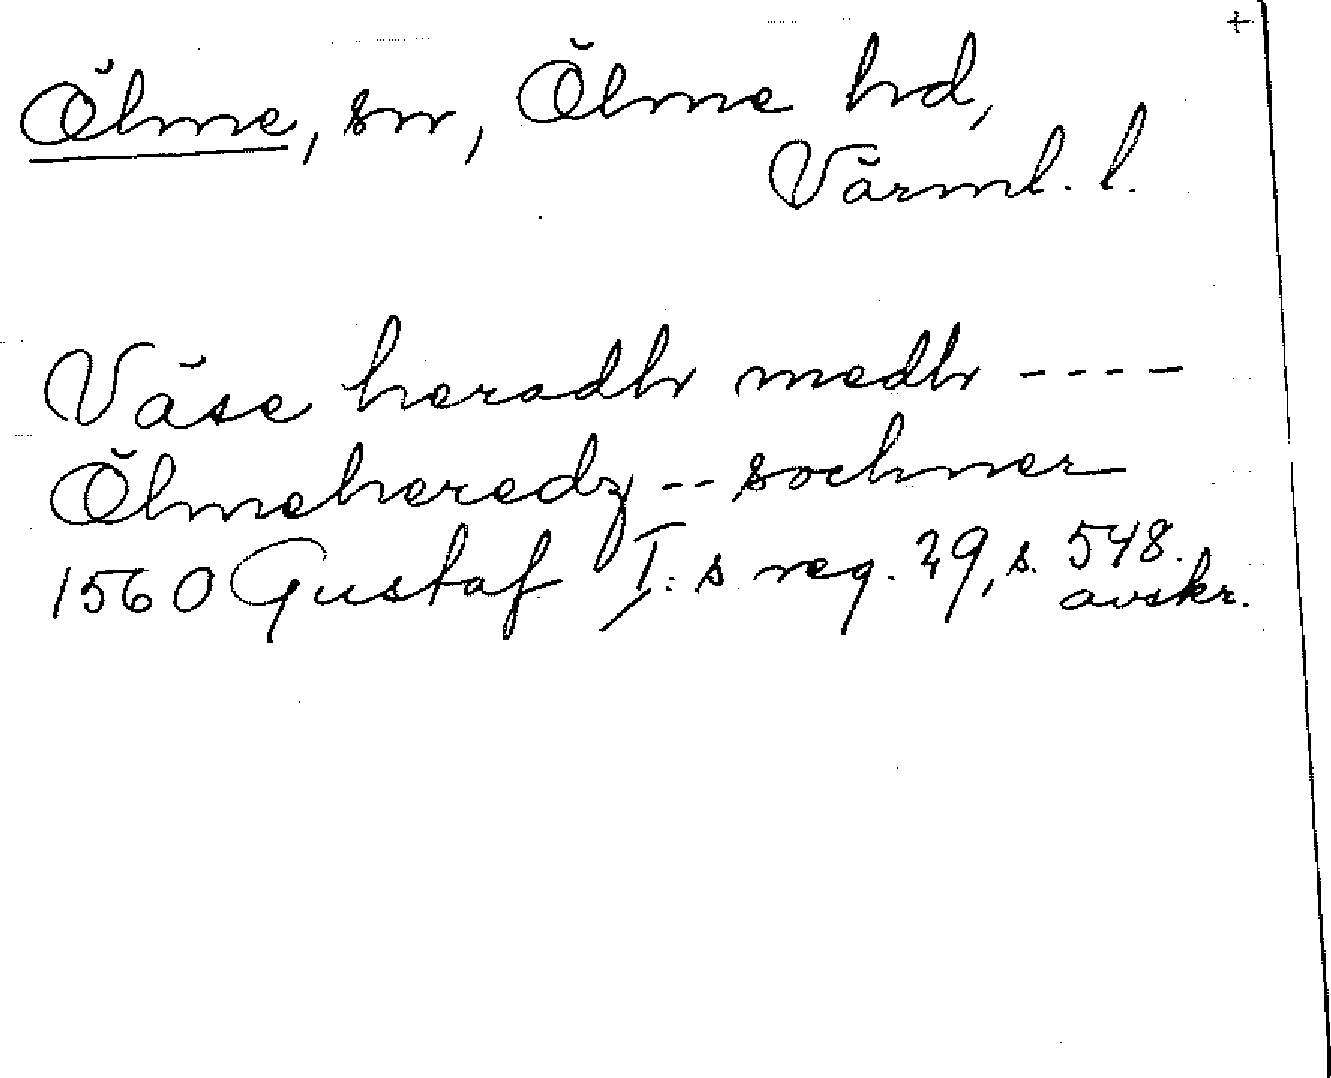 Ölme, sn, Ölme hd,
Värml. l.
Väse heradh medh ----
Ölmeheredz -- sochner
1560 Gustaf I:s reg. 29, s. 548.
avskr.